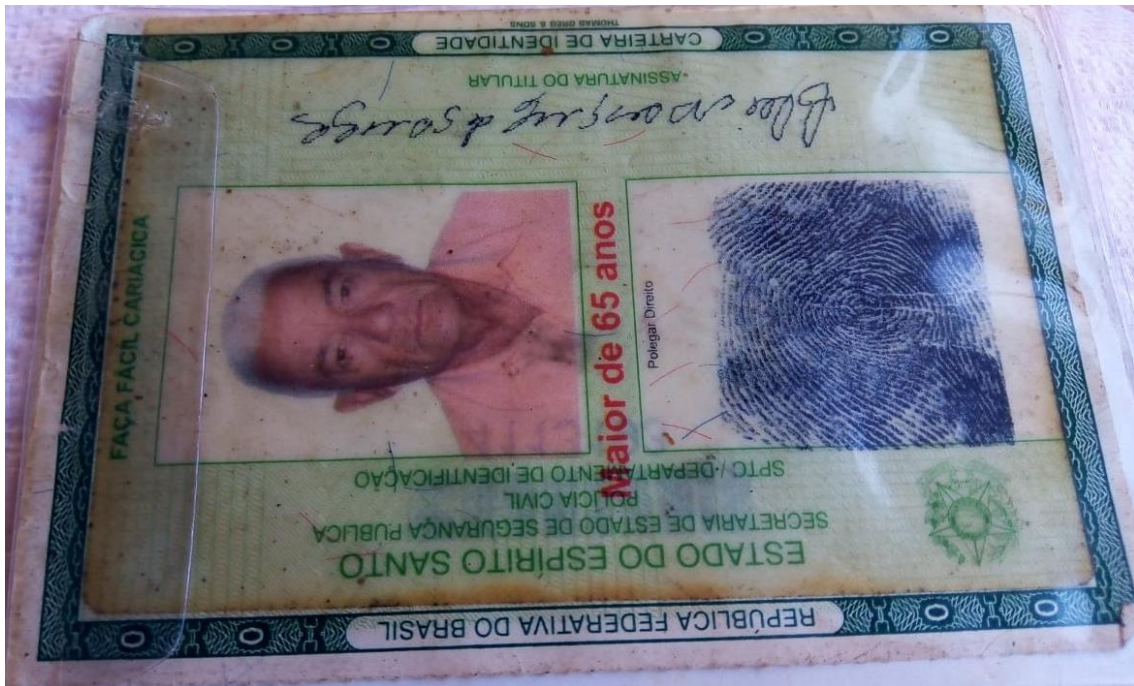 REPÚBLICA FEDERATIVA DO BRASIL
ESTADO DO ESPÍRITO SANTO
SECRETARIA DE ESTADO DE SEGURANÇA PUBLICA
POLICIA CIVIL
SPTC / DEPARTAMENTO DE IDENTIFICAÇÃO
Polegar Direito
Maior de 65 anos
FAÇA FÁCIL CARIACICA
ASSINATURA DO TITULAR
CARTEIRA DE IDENTIDADE
THOMAS GREG & SONS